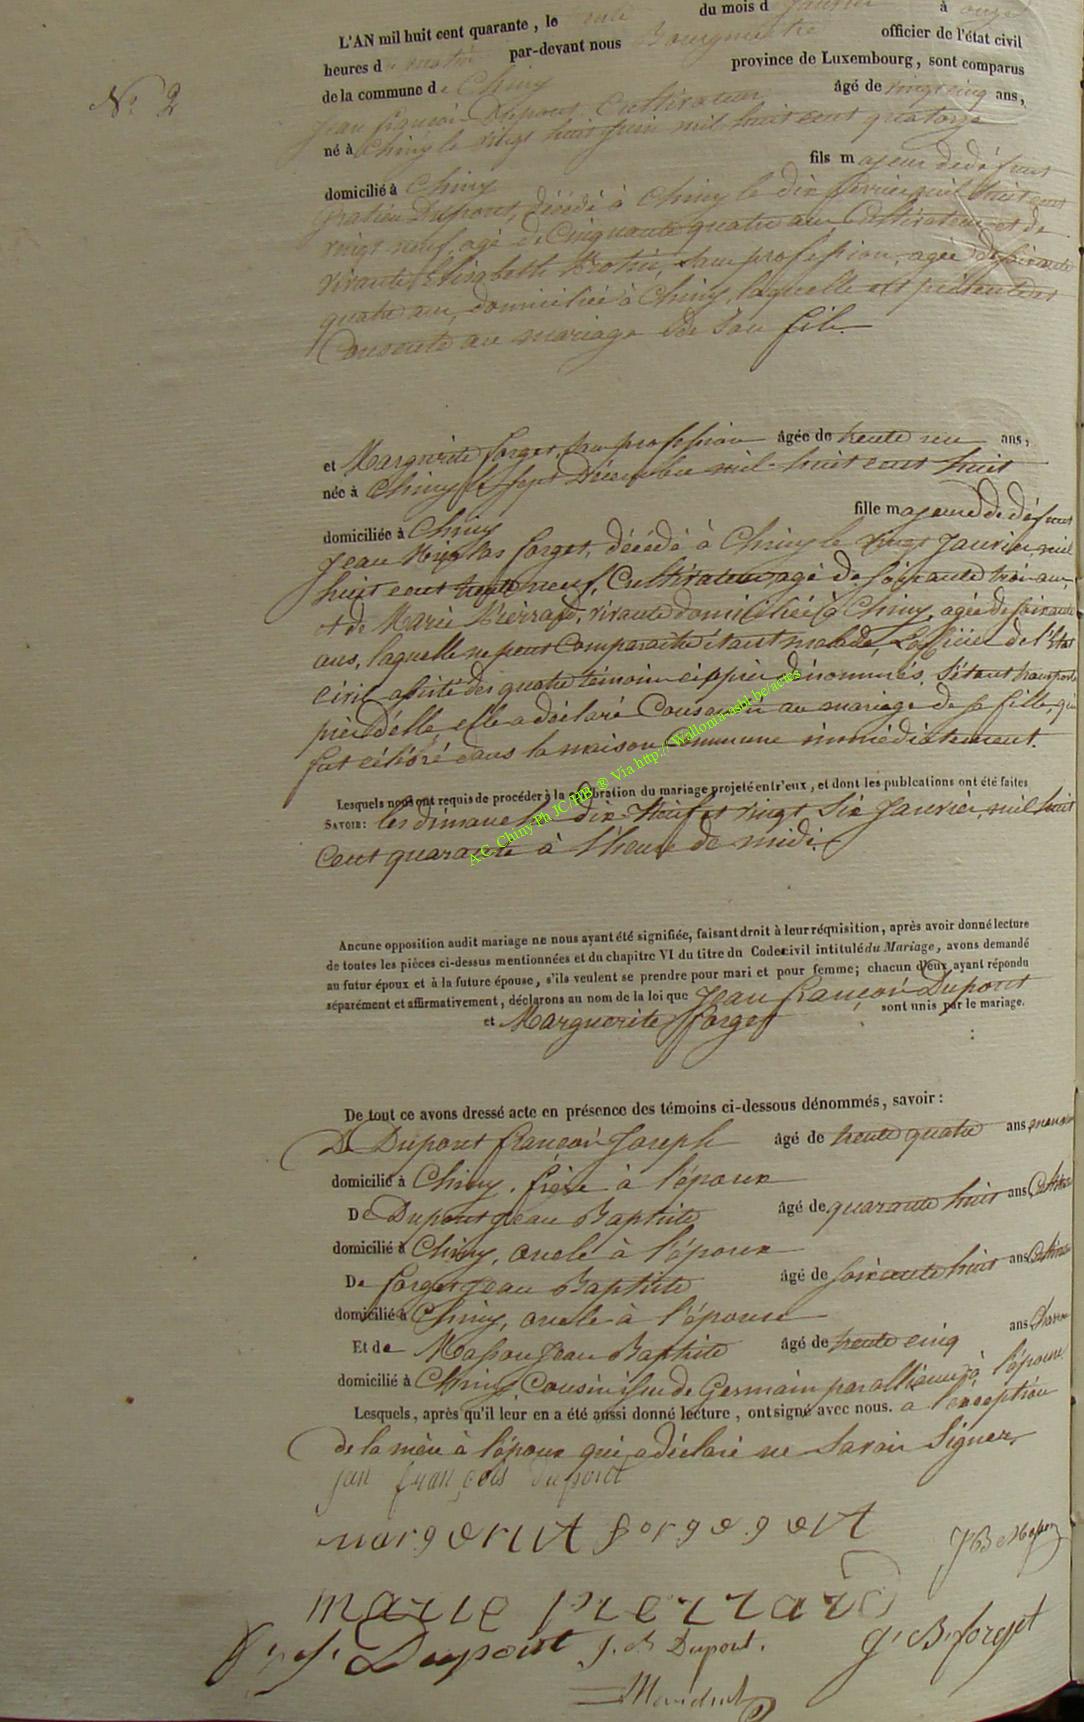 L'AN mil huit cent quarante, le trente du mois d Janvier à onze
heures d u matin par-devant nous Bourgmestre officier de l'état civil
de la commune d e Chiny province de Luxembourg, sont comparus
N° 2
Jean françois Dupont, Cultivateur âgé de vingt cinq ans,
né à Chiny le vingt huit Juin mil huit cent quatorze
domicilié à Chiny fils majeur de défunt
Dupont, décédé à Chiny le dix février mil huit cent
vingt neuf, agé de Cinquante quatre ans Cultivateur et de
vivante Elisabeth sans profession, agée de soixante
quatre ans, domiciliée à Chiny, laquelle est présente et
Consente au mariage de son fils.
et Marguerite forget, sans profession âgée de trente un ans,
née à Chiny le sept Décembre mil-huit cent huit
domiciliée à Chiny fille majeure de défunt
Jean Nicolas forget, décédé à Chiny le vingt Janvier mil
huit cent trente neuf, Cultivateur agé de soixante trois ans,
et de Marie Pierrard, vivante domiciliée à Chiny, agée de soixante
ans, laquelle ne peut Comparaitre étant malade, L'officier de l'Etat
civil assisté des quatre témoins ci après dénommés, s'étant transporté
près d'elle, elle a déclaré Consentir au mariage de sa fille, qui
fut célébré dans la maison Commune immédiatement.
Lesquels nous ont requis de procéder à la célébration du mariage projeté entr'eux, et dont les publcations ont été faites
SAVOIR: les dimanches dix-Neuf et vingt Six Janvier, mil huit
Cent quarante à l'heure de midi.
A.C. Chiny Ph JC/HB ® Via http://Wallonia-asbl.be/actes
Aucune opposition audit mariage ne nous ayant été signifiée, faisant droit à leur réquisition, après avoir donné lecture
de toutes les pièces ci-dessus mentionnées et du chapitre VI du titre du Code civil intitulé du Mariage, avons demandé
au futur époux et à la future épouse, s'ils veulent se prendre pour mari et pour femme; chacun d'eux ayant répondu
séparément et affirmativement, déclarons au nom de la loi que Jean françois Dupont
et Marguerite Forget sont unis par le mariage.
De tout ce avons dressé acte en présence des témoins ci-dessous dénommés, savoir:
De Dupont françois Joseph âgé de trente quatre ans
domicilié à Chiny, frère à l'époux
De Dupont Jean Baptiste âgé de quarante huit ans Cultivateur
domicilié à Chiny, oncle à l'époux
De forget Jean Baptiste âgé de soixante huit ans Cultivateur
domicilié à Chiny, oncle à l'épouse
Et de Masson Jean Baptiste âgé de trente cinq ans
domicilié à Chiny, Cousin issu de Germain par alliance à l'épouse
Lesquels, après qu'il leur en a été aussi donné lecture, ont signé avec nous. a l'exception
de la mère à l'époux qui a déclaré ne Savoir Signer
jan françois dupont
marie pierrard
J B Masson
f. j. Dupont J. B Dupont. J. B. forget